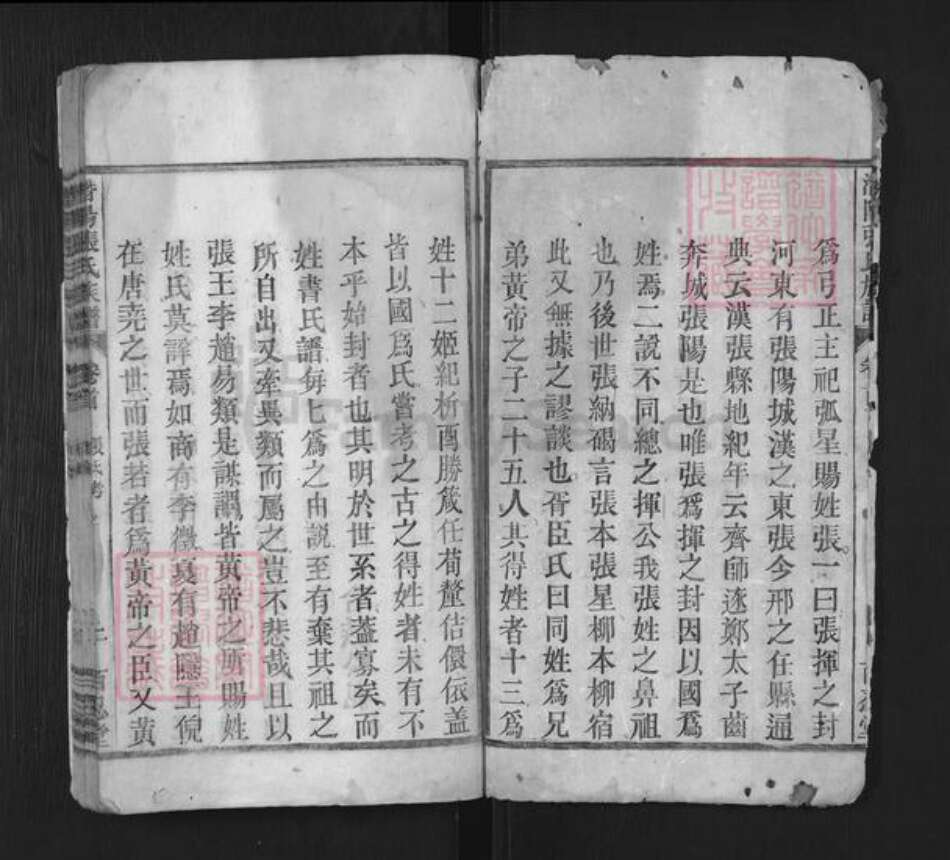 爲弓正主祀弧星賜姓張一曰張揮之封
河東有張陽城漢之東張今邢之任縣通
典云漢張縣地紀年云齊師逐鄭太子齒
奔城張陽是也唯張爲揮之封因以國爲
姓焉二說不同總之揮公我張姓之鼻祖
也乃後世張納碣言張本張星柳本柳宿
此又無據之謬談也胥臣氏曰同姓爲兄
弟黃帝之子二十五人其得姓者十三爲
姓十二姬紀析酉勝箴任荀釐佶儇依蓋
皆以國爲氏嘗考之古之得姓者未有不
本乎始封者也其明於世系者蓋寡矣而
姓書氏譜每七爲之由說至有棄其祖之
所自出又牽異類而屬之豈不悲哉且以
張王李趙易類是謀謂皆黃帝之所賜姓
姓氏莫詳焉如商有李徵夏有趙隱王倪
在唐堯之世而張若者爲黃帝之臣又黃
張氏族譜
卷首